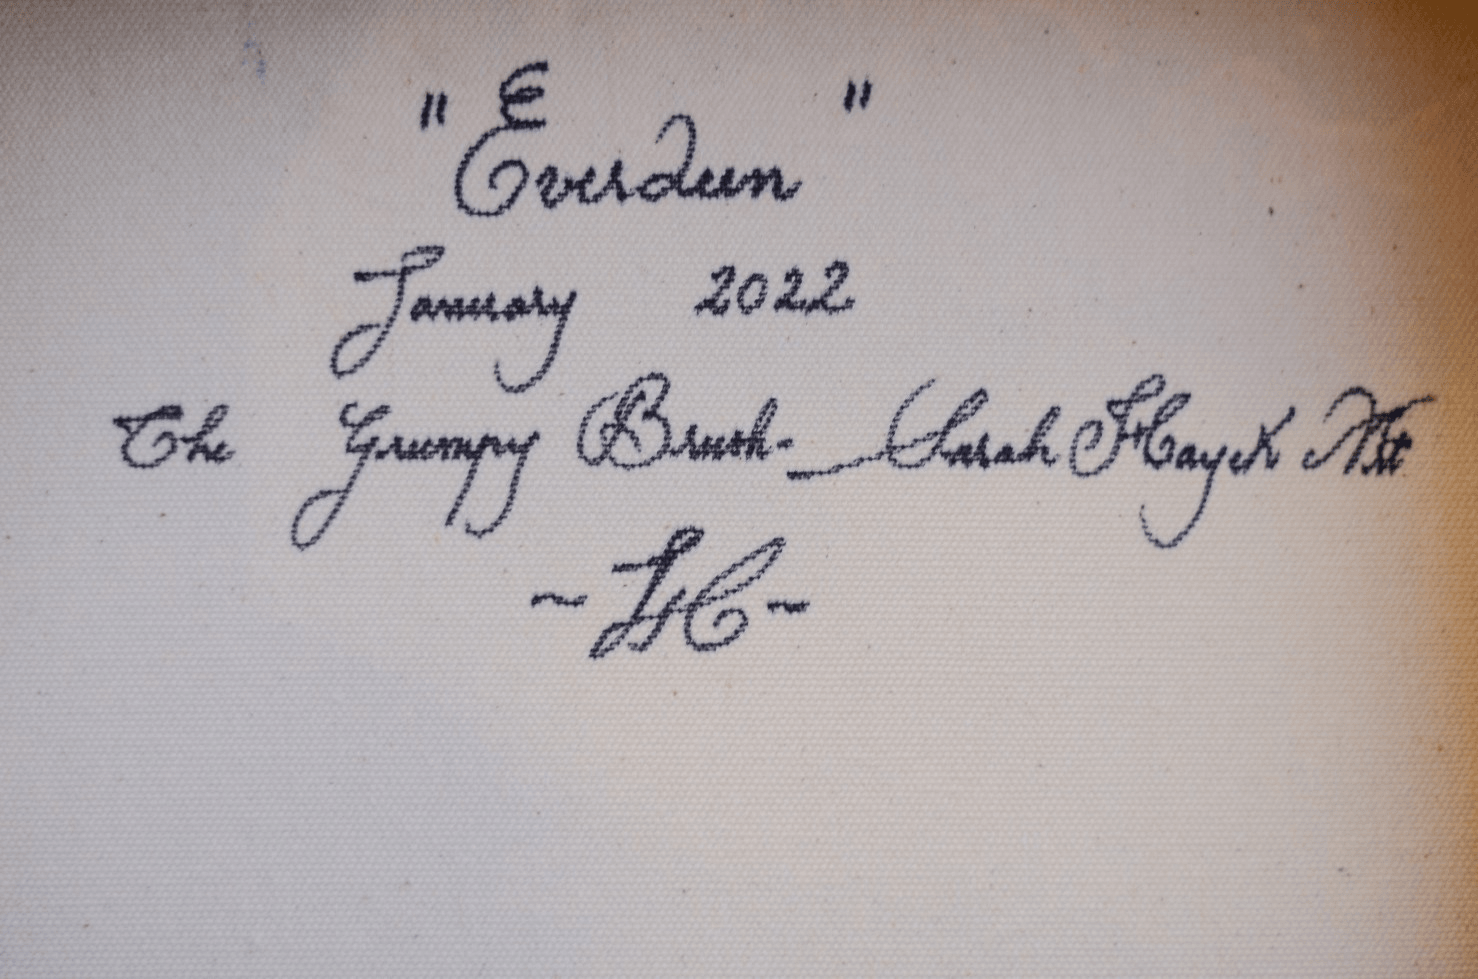 "Everdeen"
January 2022
The Grumpy Brush - Sarah Hayek